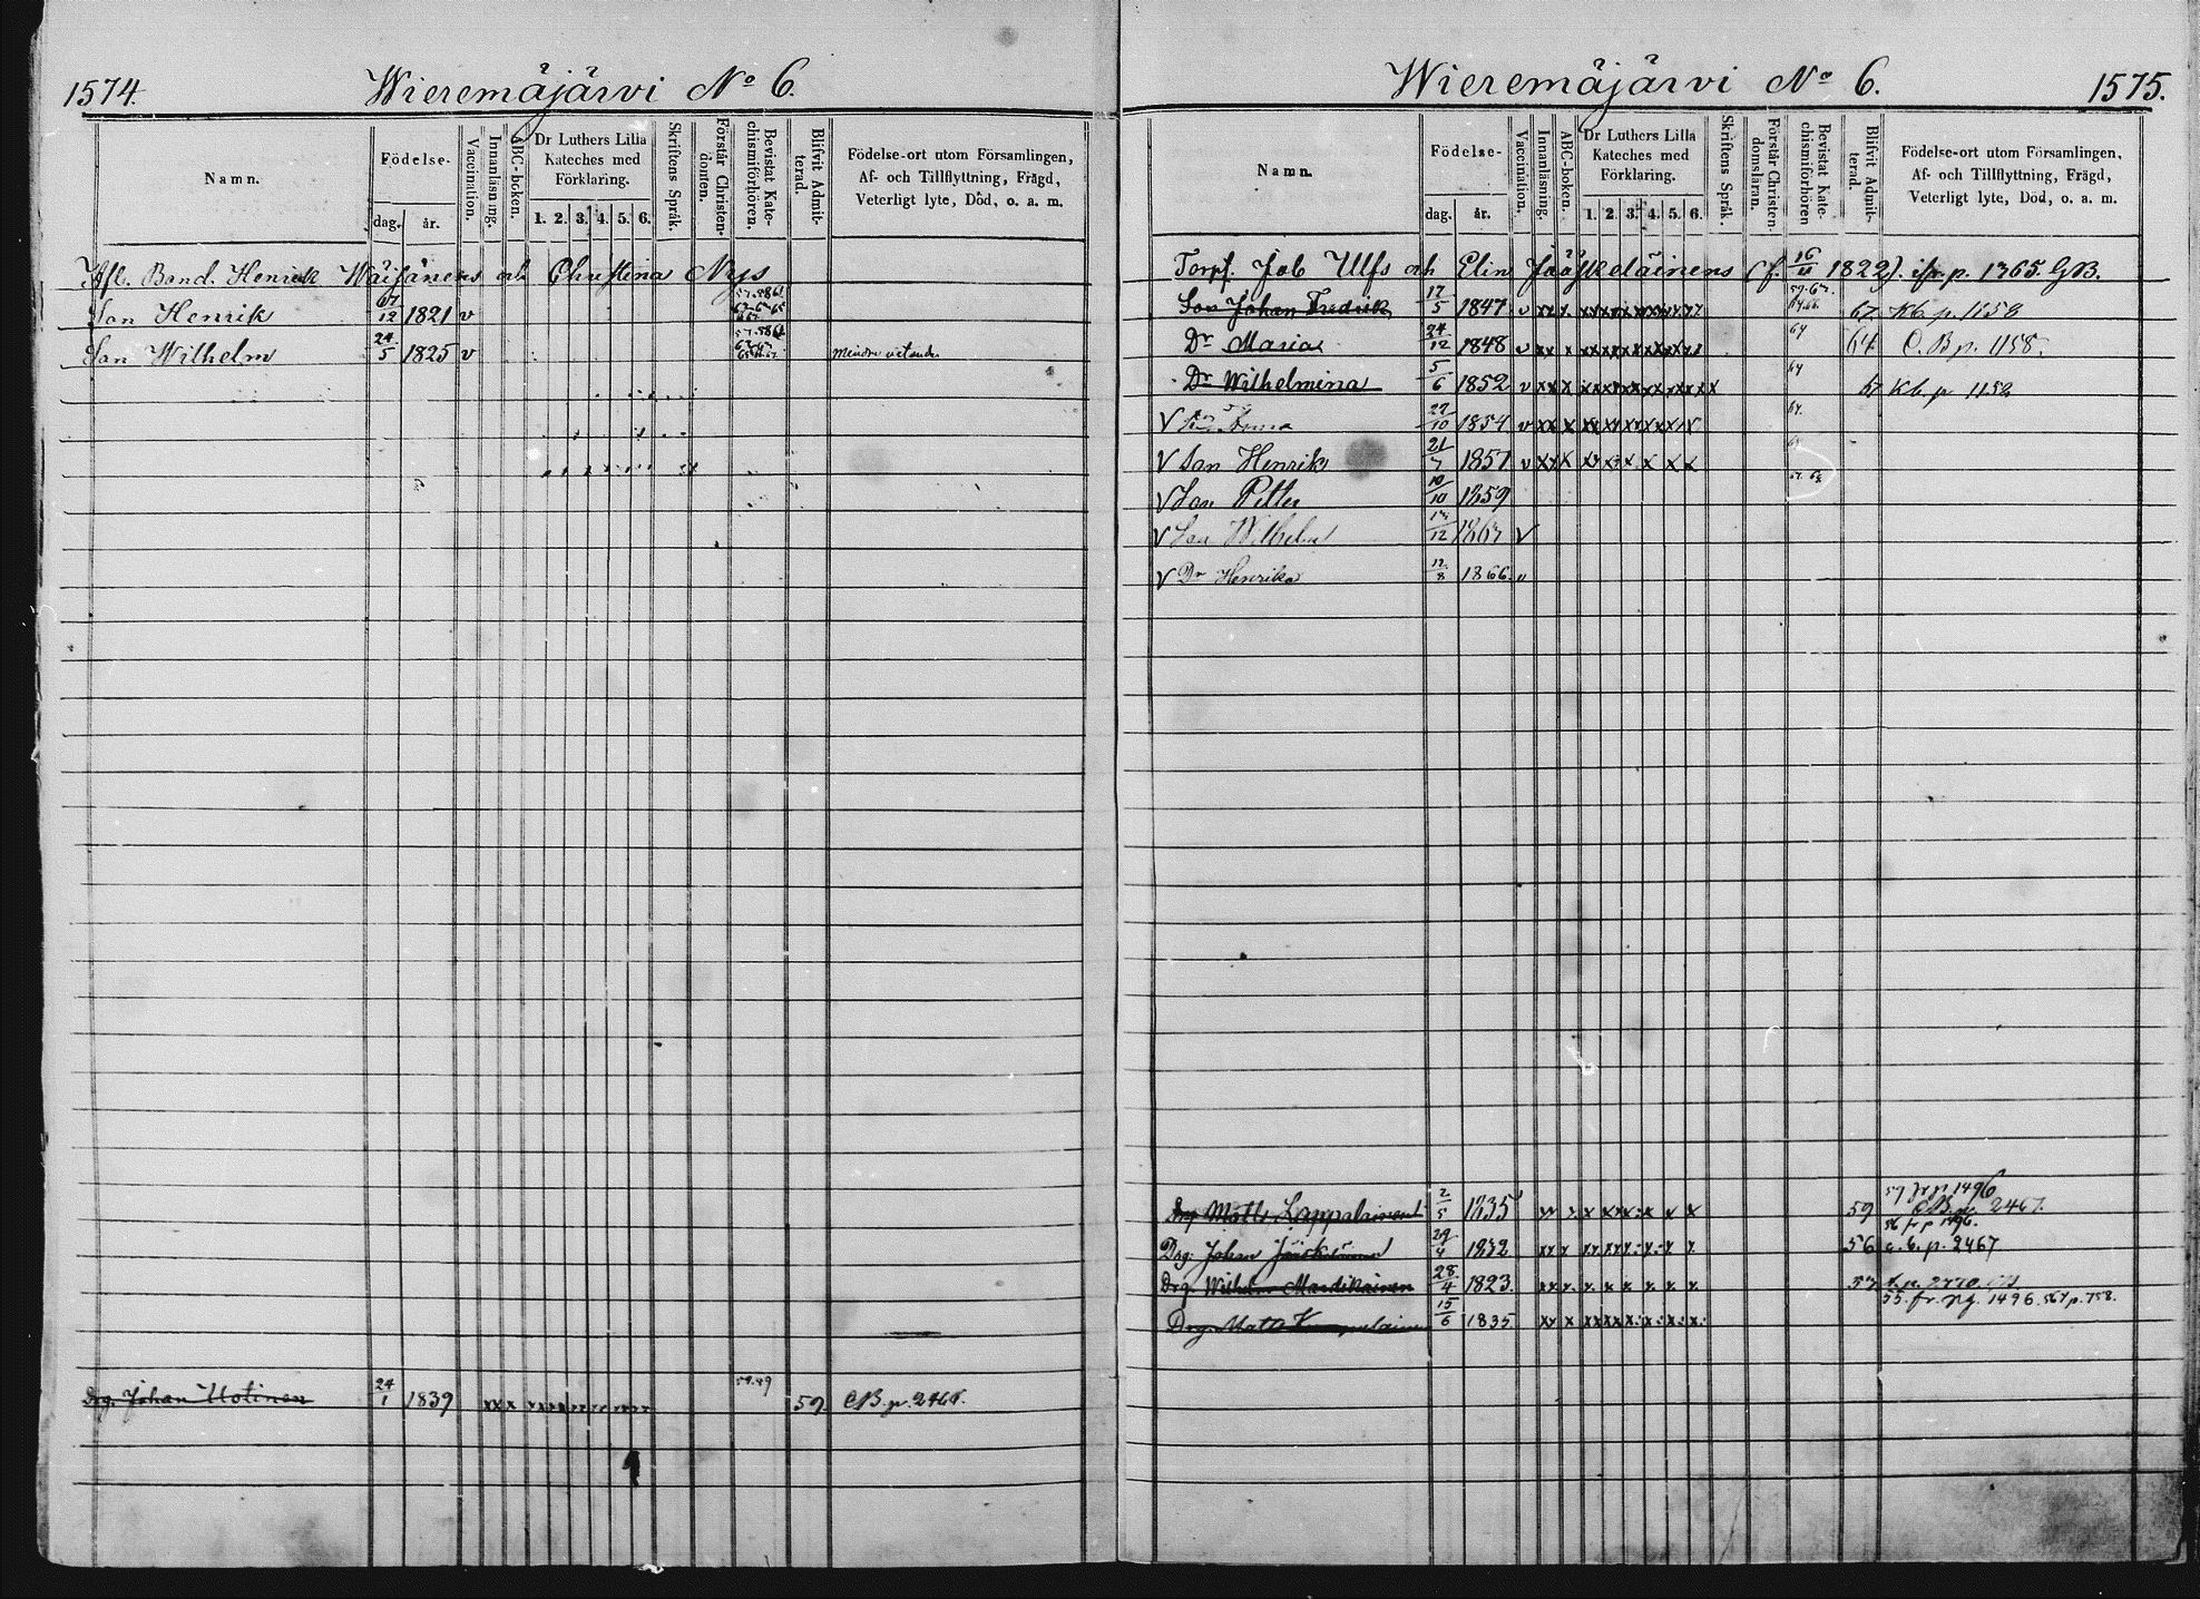 1574.
Wieremäjärvi No 6.
Namn.
Födelse-
dag.
år.
Vaccination.
Innanläsning.
ABC-boken.
Dr Luthers Lilla
Kateches med
Förklaring.
1. 2. 3. 4. 5. 6.
Skriftens Språk.
Förstår Christen-
domen.
Bevistat Kate-
chismiförhören.
Blifvit Admit-
terad.
Födelse-ort utom Församlingen,
Af- och Tillflyttning, Frägd,
Veterligt lyte, Död, o. a. m.
Afl. Bond. Henrick Wäisänens och Christina Nys
Son Henrik 12 1821 v
Son Wilhelm 24/5 1825 v mindre vetande
Drg. Johan Hotinen 24/1 1839 xx x 59 CB. p.
Wieremäjärvi No 6.
1575.
Namn.
Födelse-
dag.
år.
Vaccination.
Innanläsning.
ABC-boken.
Dr Luthers Lilla
Kateches med
Förklaring.
1. 2. 3. 4. 5. 6.
Skriftens Språk.
Förstår Christen-
domsläran.
Bevistat Kate-
chismiförhören
Blifvit Admit-
terad.
Födelse-ort utom Församlingen,
Af- och Tillflyttning, Frägd,
Veterligt lyte, Död, o. a. m.
Torpf. Job Ulfs och Elin Jääskeläinens (f. 16/11 1822). ifr. p. 1365. GB.
Son Johan Fredrik 17/5 1847 v 67. Kb. p. 1158
Dr Maria 24/12 1848 v 64 64 C. B p. 1158.
Dr Wilhelmina 5/6 1852 v 64 67 Kb. p. 1158
V Dr Anna 27/10 1854 v 64.
V Son Henrik 21/7 1857 v
V Son Petter 10/10 1859
V Son Wilhelm 12 1863 V
V Dr Henrika 12/8 1866. v
57 fr p 1496
Drg Matts Lappalainen 2/5 1835 59 CB p. 2467.
56 fr p 1496.
Drg. Johan 29/4 1832 56 c. b. p. 2467
Drg. Wilhelm 28/4 1823. 57
55. fr. pg. 1496. 56 p. 758.
Drg. Matts 15/6 1835